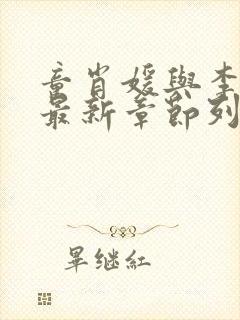 童肖媛與李
最新章節列
畢继紅